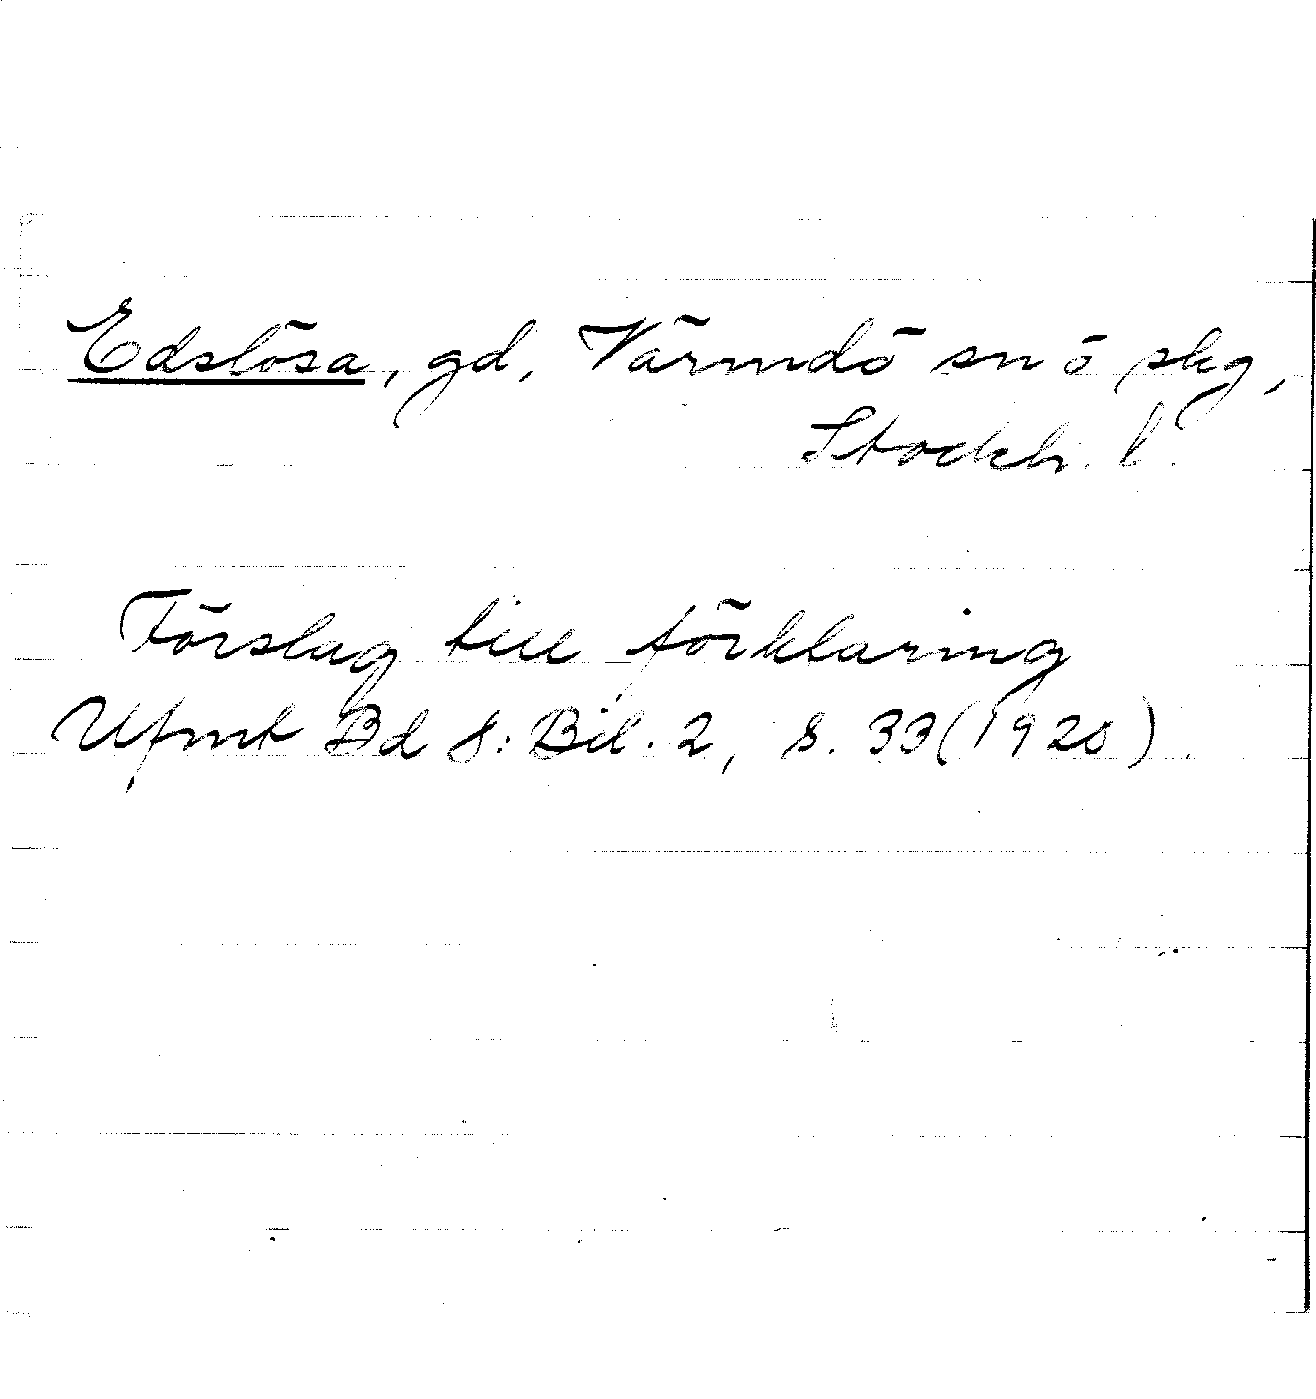 Edslösa, gd, Värmdö sn o skg,
Stockh. l.
Förslag till förklaring
Ufmt Bd 8: Bil. 2, s. 33 (1920).